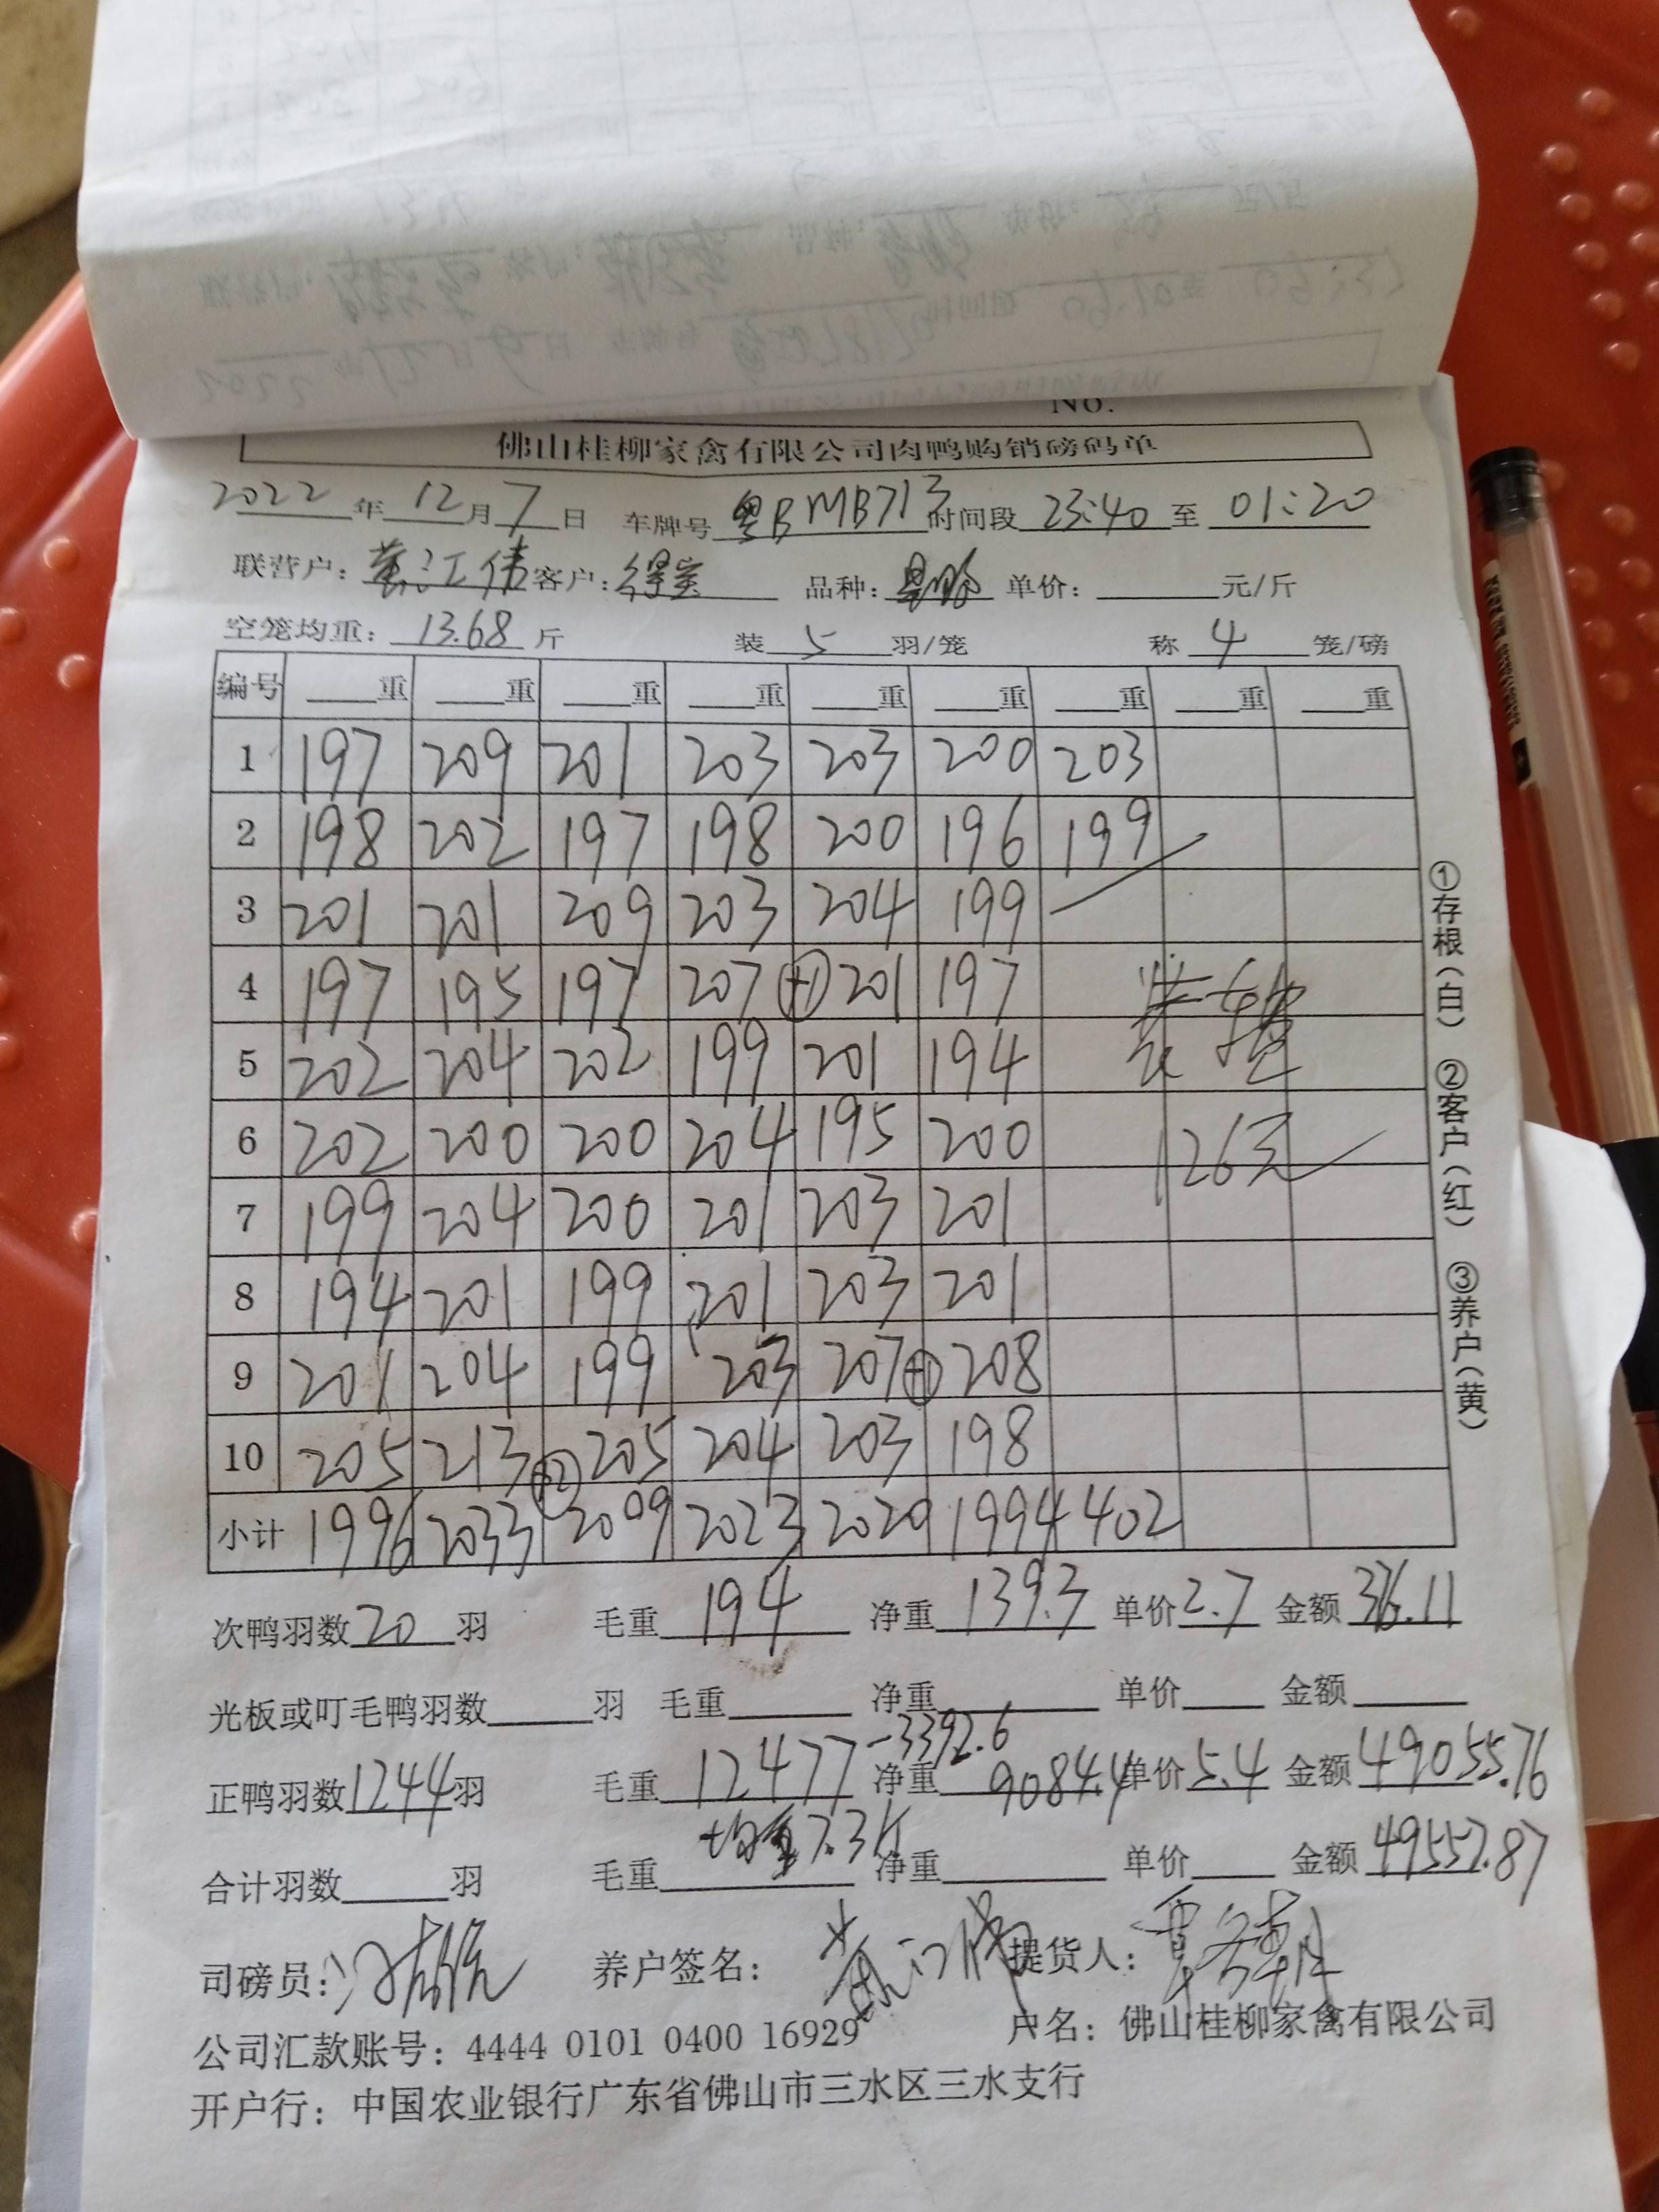 No.
佛山桂柳家禽有限公司肉鸭购销磅码单
2022年12月7日 车牌号 粤BMB713 时间段 23:40 至 01:20
联营户：黄江伟 客户：得宝 品种： 单价： 元/斤
空笼均重：13.68斤 装5羽/笼 称4笼/磅
编号 重 重 重 重 重 重 重 重 重
1 197 209 201 203 203 200 203
2 198 202 197 198 200 196 199
3 201 201 209 203 204 199
4 197 195 197 207 +1 201 197
5 202 204 202 199 201 194
6 202 200 200 204 195 200
7 199 204 200 201 203 201
8 194 201 199 201 203 201
9 201 204 199 203 207 +1 208
10 205 213 +2 205 204 203 198
小计 1996 2033 2009 2023 2020 1994 402
装车费
126元
①存根（白） ②客户（红） ③养户（黄）
次鸭羽数20羽 毛重194 净重139.3 单价2.7 金额376.11
光板或叮毛鸭羽数 羽 毛重 净重 单价 金额
-3392.6
正鸭羽数1244羽 毛重12477 净重9084.4 单价5.4 金额49055.76
均重7.3斤
合计羽数 羽 毛重 净重 单价 金额49557.87
司磅员： 养户签名：黄江伟 提货人：
公司汇款账号：4444 0101 0400 16929 户名：佛山桂柳家禽有限公司
开户行：中国农业银行广东省佛山市三水区三水支行